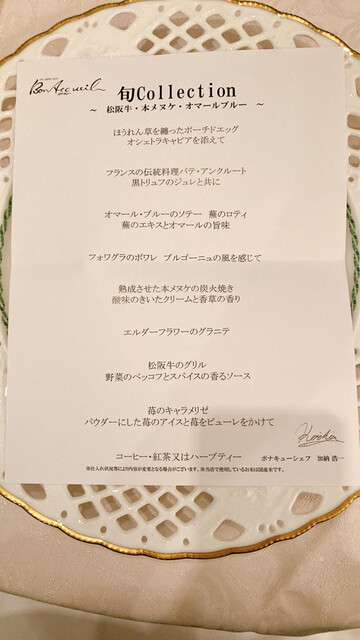 Bon Accueil
旬Collection
～ 松阪牛・本メヌケ・オマールブルー ～
ほうれん草を纏ったポーチドエッグ
オシェトラキャビアを添えて
フランスの伝統料理パテ・アンクルート
黒トリュフのジュレと共に
オマール・ブルーのソテー 蕪のロティ
蕪のエキスとオマールの旨味
フォワグラのポワレ ブルゴーニュの風を感じて
熟成させた本メヌケの炭火焼き
酸味のきいたクリームと香草の香り
エルダーフラワーのグラニテ
松阪牛のグリル
野菜のベッコフとスパイスの香るソース
苺のキャラメリゼ
パウダーにした苺のアイスと苺をピューレをかけて
コーヒー・紅茶又はハーブティー
ボナキューシェフ 加納 浩一
※仕入れ状況等により内容が変更となる場合がございます。※当店で使用しているお米は国産米です。